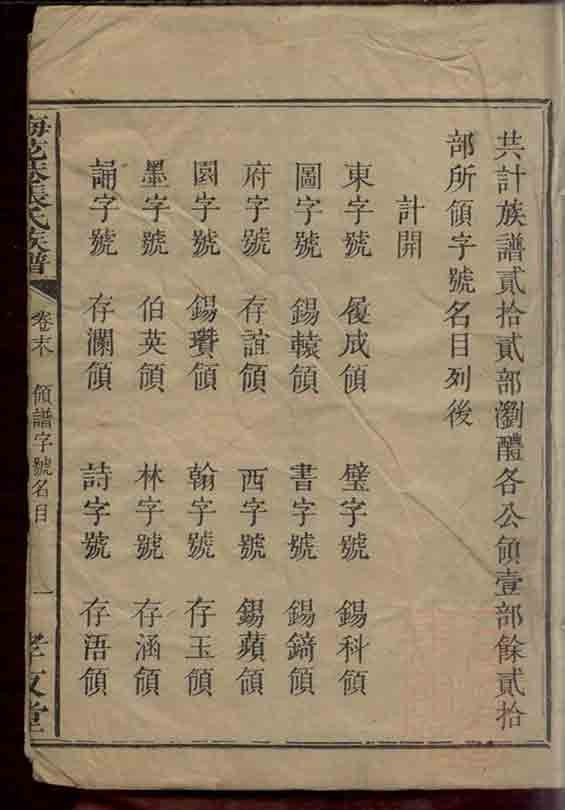 共計族譜貳拾貳部瀏醴各公領壹部餘貳拾
部所領字號名目列後
計開
東字號 履成領 璧字號 錫科領
圖字號 錫轅領 書字號 錫錡領
府字號 存誼領 西字號 錫蘋領
園字號 錫瓚領 翰字號 存玉領
墨字號 伯英領 林字號 存涵領
誦字號 存瀾領 詩字號 存浯領
梅花巷張氏族譜 卷末 領譜字號名目 一 孝友堂